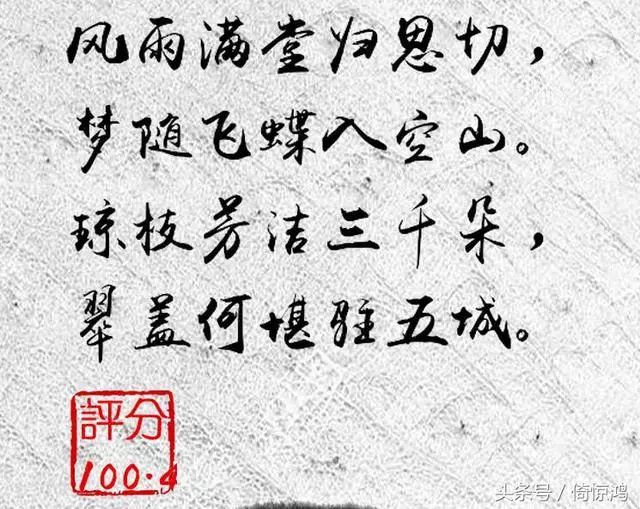 风雨满堂归思切，
梦随飞蝶入空山。
琼枝芳洁三千朵，
翠盖何堪驻五城。
評分
100.4
头条号／倚惊鸿